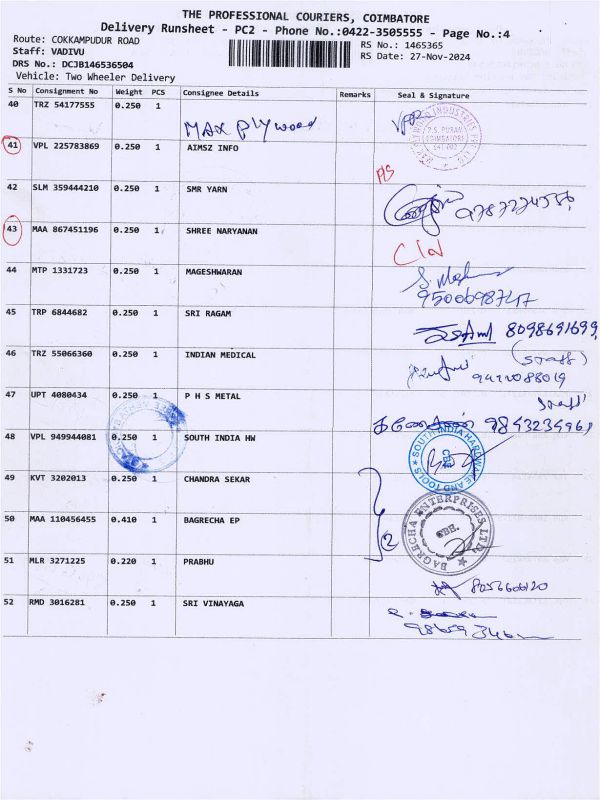 THE PROFESSIONAL COURIERS, COIMBATORE
Delivery Runsheet - PC2 - Phone No.:0422-3505555 - Page No.:4
Route: COKKAMPUDUR ROAD RS No.: 1465365
Staff: VADIVU RS Date: 27-Nov-2024
DRS No.: DCJB146536504
Vehicle: Two Wheeler Delivery
S No Consignment No Weight PCS Consignee Details Remarks Seal & Signature
40 TRZ 54177555 0.250 1
MAX Plywood
41 VPL 225783869 0.250 1 AIMSZ INFO
42 SLM 359444210 0.250 1 SMR YARN
43 MAA 867451196 0.250 1 SHREE NARYANAN
44 MTP 1331723 0.250 1 MAGESHWARAN
45 TRP 6844682 0.250 1 SRI RAGAM
8098691699
46 TRZ 55066360 0.250 1 INDIAN MEDICAL
(Staff)
47 UPT 4080434 0.250 1 P H S METAL
Staff
9843234961
48 VPL 949944081 0.250 1 SOUTH INDIA HW
SOUTH INDIA HARDWARE AND TOOLS
CBE
49 KVT 3202013 0.250 1 CHANDRA SEKAR
50 MAA 110456455 0.410 1 BAGRECHA EP
2
BAGRECHA ENTERPRISES LTD.
CBE.
51 MLR 3271225 0.220 1 PRABHU
52 RMD 3016281 0.250 1 SRI VINAYAGA